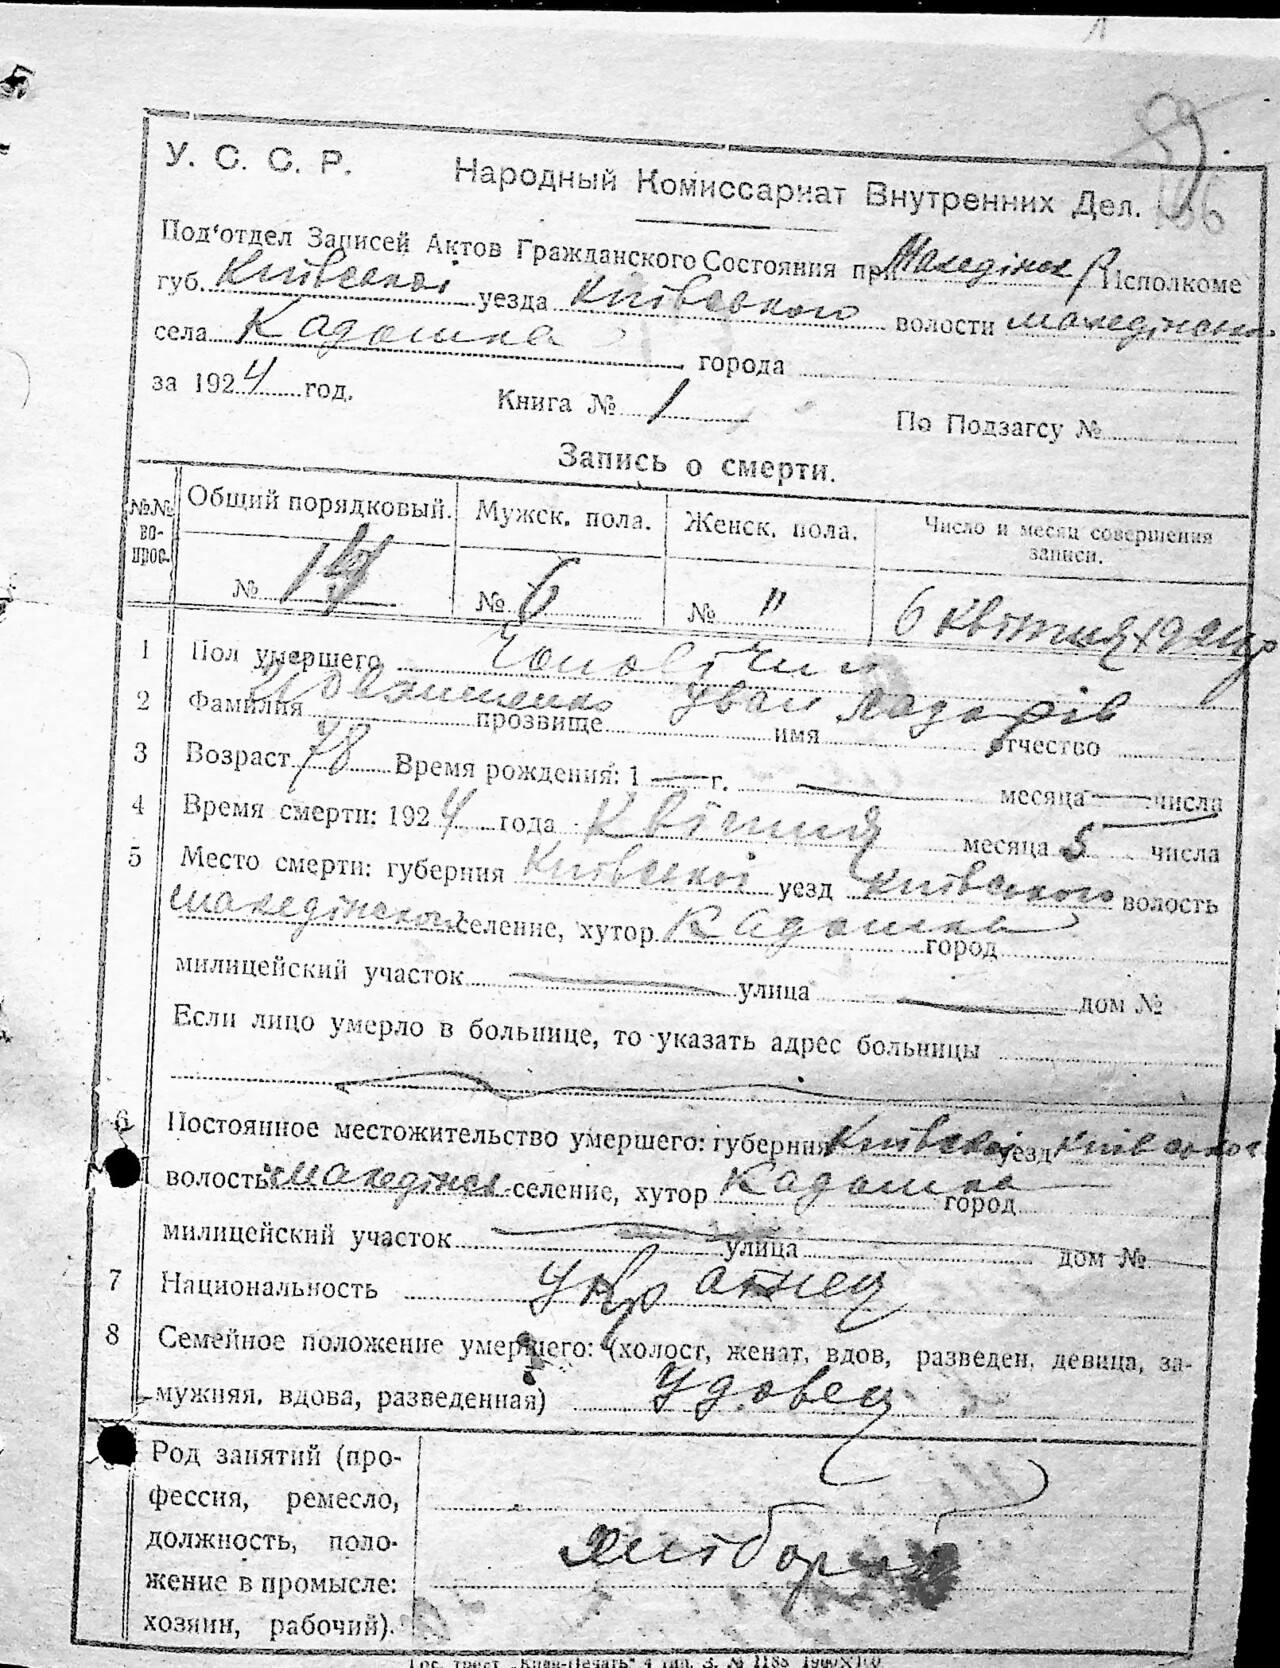 У. С. С. Р. Народный Комиссариат Внутренних Дел.
59
166
Под'отдел Записей Актов Гражданского Состояния при Македінск Р Исполкоме
губ. Київської уезда Київського волости Македінської
села Кадомка города
за 1924 год. Книга № 1 По Подзагсу №
Запись о смерти.
№.№ вопрос. Общий порядковый. Мужск. пола. Женск. пола. Число и месяц совершения записи.
№ № 6 № " 6 Квітня 1924 р
1 Пол умершего Чоловічий
2 Фамилия прозвище Іван имя Лазарів отчество
3 Возраст 78 Время рождения: 1 — г. — месяца — числа
4 Время смерти: 1924 года Квітня месяца 5 числа
5 Место смерти: губерния Київської уезд Київського волость
Македінської селение, хутор Кадомка город
милицейский участок — улица — дом №
Если лицо умерло в больнице, то указать адрес больницы
6 Постоянное местожительство умершего: губерния Київської уезд Київського
волость Македінск селение, хутор Кадомка город
милицейский участок — улица дом №
7 Национальность Українец
8 Семейное положение умершего: (холост, женат, вдов, разведен, девица, за-
мужняя, вдова, разведенная) Удовец
Род занятий (про-
фессия, ремесло,
должность, поло-
жение в промысле:
хозяин, рабочий). Хлібороб
Гос. трест „Киив-Печать" 4 тип. З. № 1188